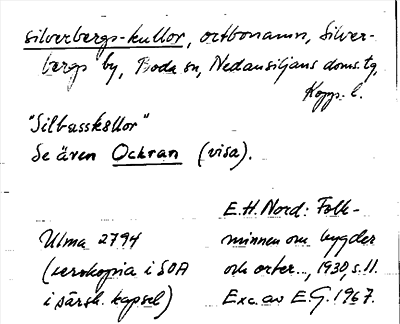 silverbergs-kullor, ortbonamn, Silver-
bergs by, Boda sn, Nedansiljans doms. tg,
Kopp. l.
"Silbasskullor"
Se även Ockran (visa).
E.H. Nord: Folk-
Ulma 2794 minnen om bygder
(xerokopia i SOA och orter..., 1930, s. 11.
i särsk. kapsel) Exc. av E.G. 1967.